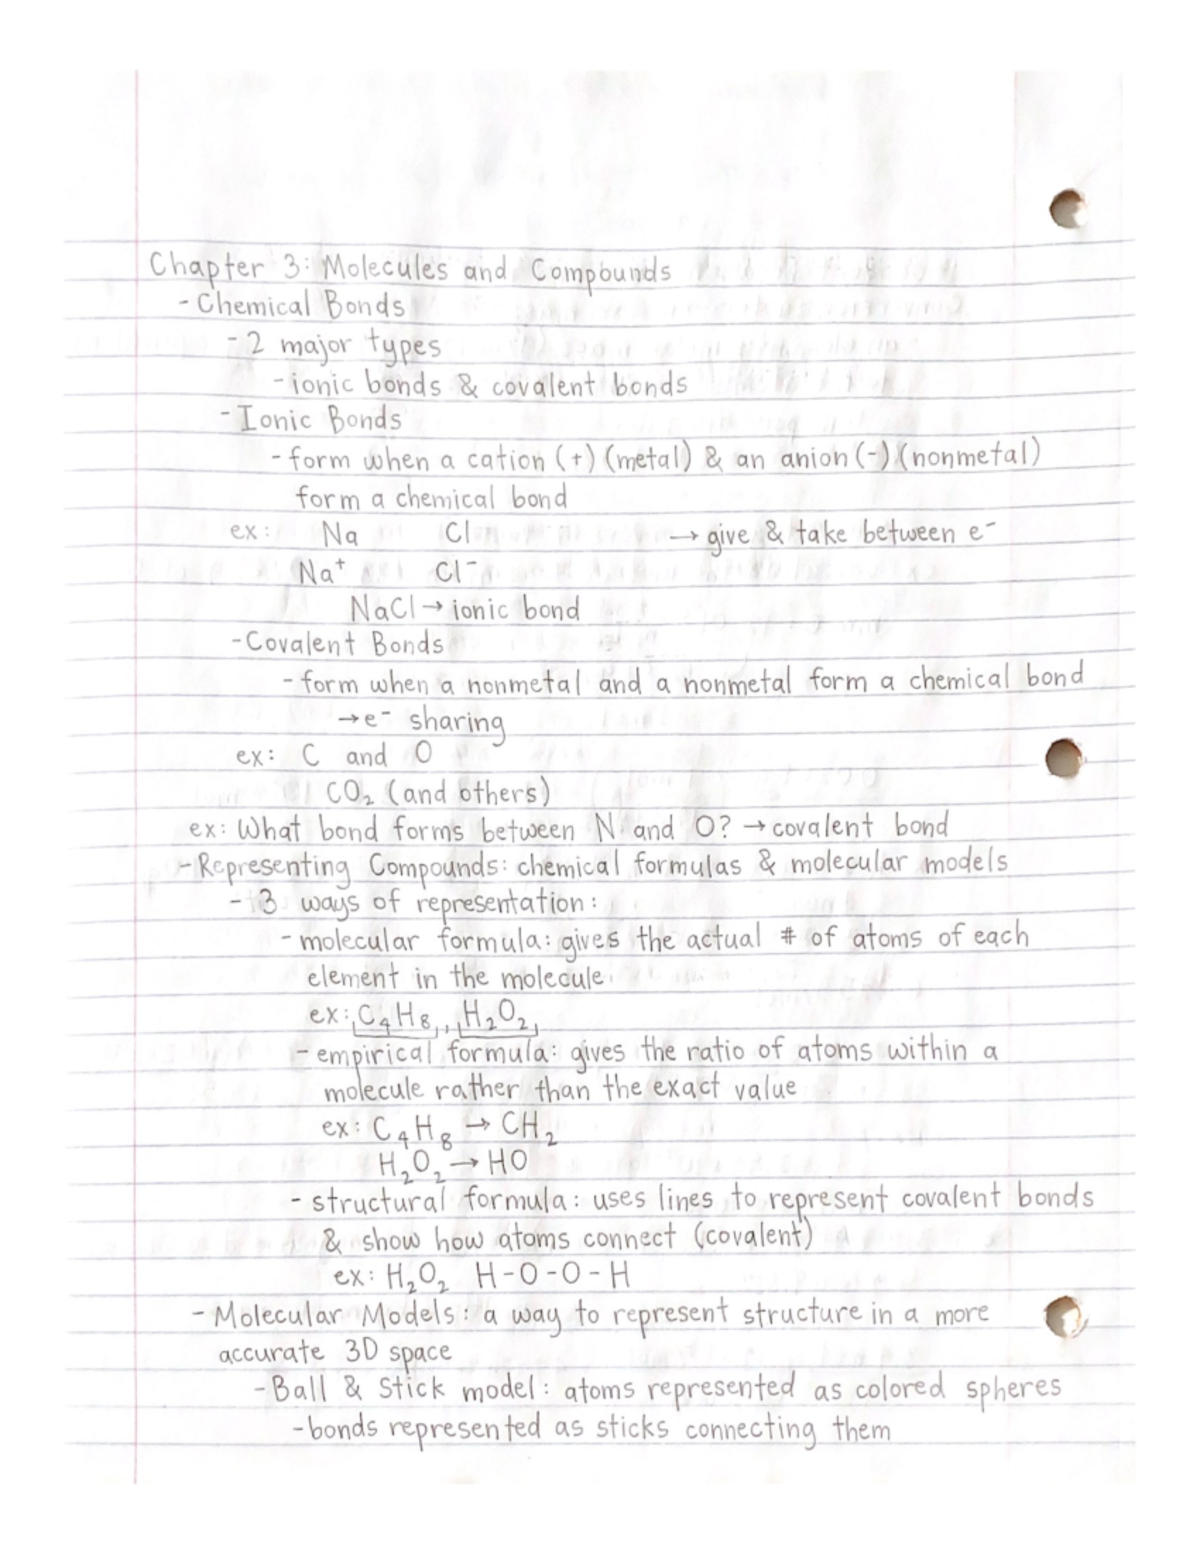 Chapter 3: Molecules and Compounds
- Chemical Bonds
- 2 major types
- ionic bonds & covalent bonds
- Ionic Bonds
- form when a cation (+) (metal) & an anion (-) (nonmetal)
form a chemical bond
ex: Na Cl → give & take between e⁻
Na⁺ Cl⁻
NaCl → ionic bond
- Covalent Bonds
- form when a nonmetal and a nonmetal form a chemical bond
→ e⁻ sharing
ex: C and O
CO₂ (and others)
ex: What bond forms between N and O? → covalent bond
- Representing Compounds: chemical formulas & molecular models
- 3 ways of representation:
- molecular formula: gives the actual # of atoms of each
element in the molecule
ex: C₄H₈, H₂O₂
- empirical formula: gives the ratio of atoms within a
molecule rather than the exact value
ex: C₄H₈ → CH₂
H₂O₂ → HO
- structural formula: uses lines to represent covalent bonds
& show how atoms connect (covalent)
ex: H₂O₂ H-O-O-H
- Molecular Models: a way to represent structure in a more
accurate 3D space
- Ball & Stick model: atoms represented as colored spheres
- bonds represented as sticks connecting them